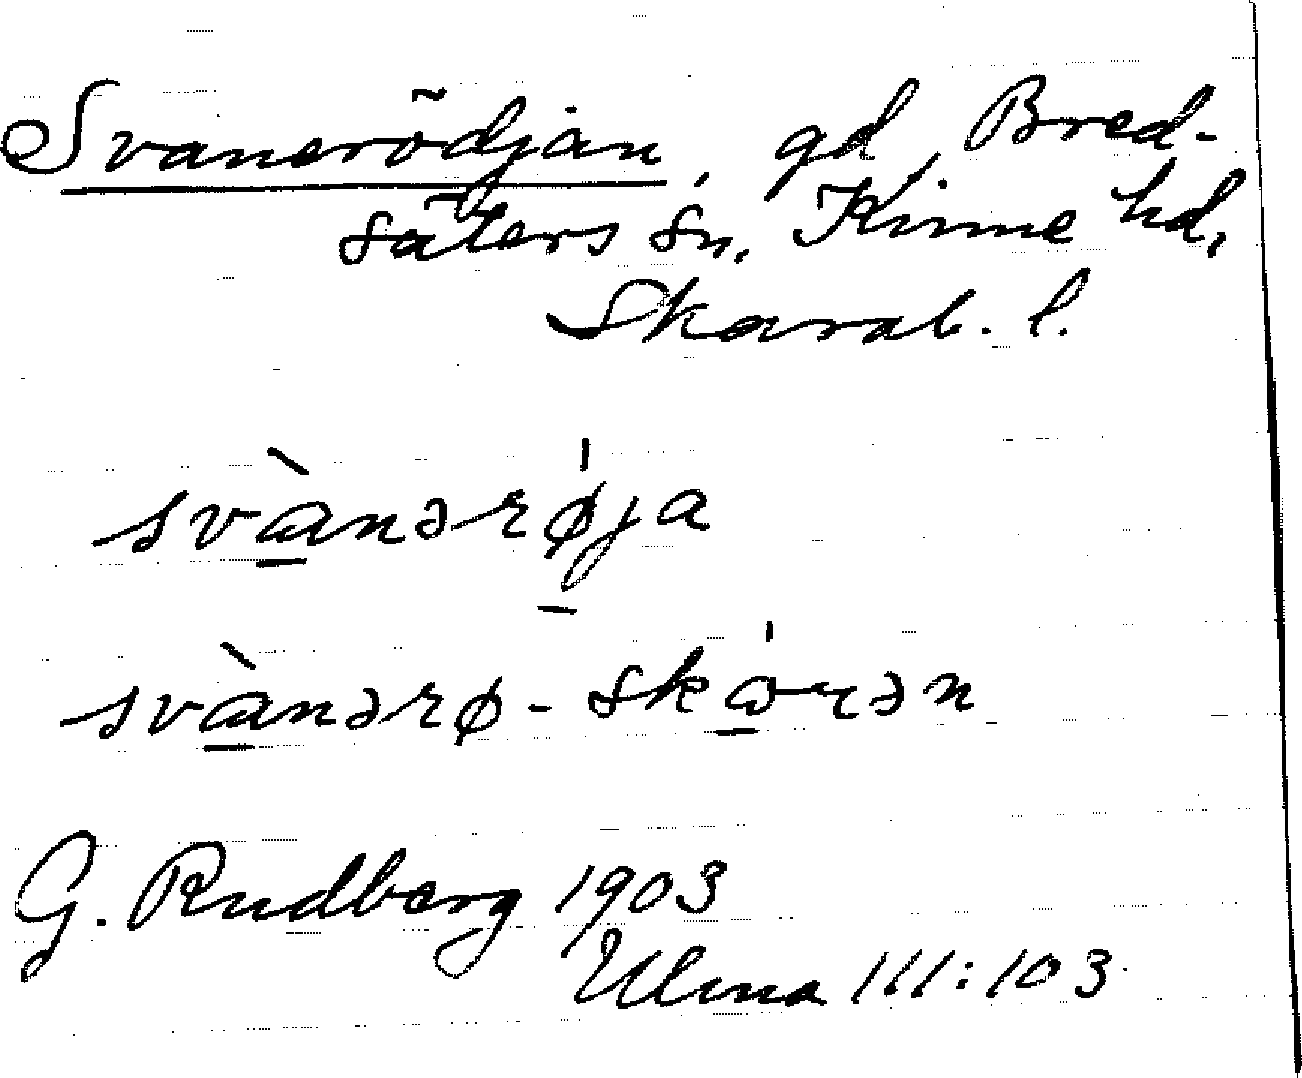 Svanerödjan, gd, Bred-
säters sn, Kinne hd,
Skarab. l.
svànərøja
svànərø-skóɤən
G. Rudberg 1903
Ulma 111:103